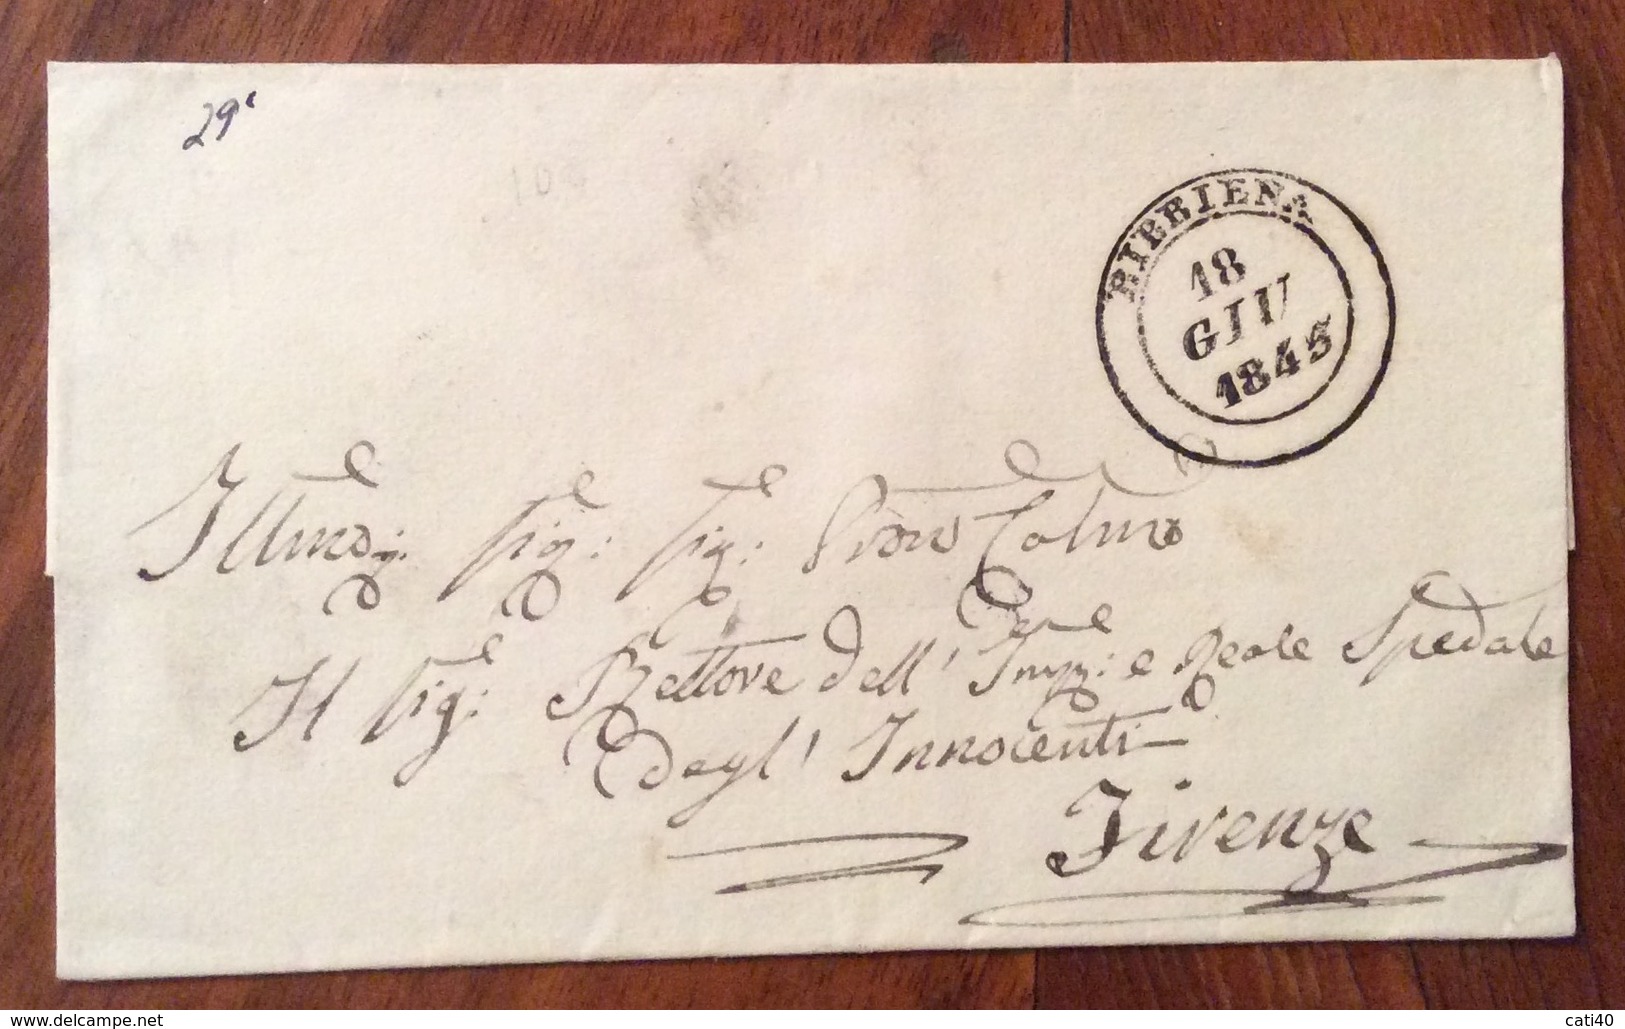 29
BIBBIENA
18
GIU
1845
Illmo: Sig: Sig: Pron Colmo
Il Sig: Rettore dell' Imp: e Reale Spedale
degl' Innocenti
Firenze
www.delcampe.net
cati40